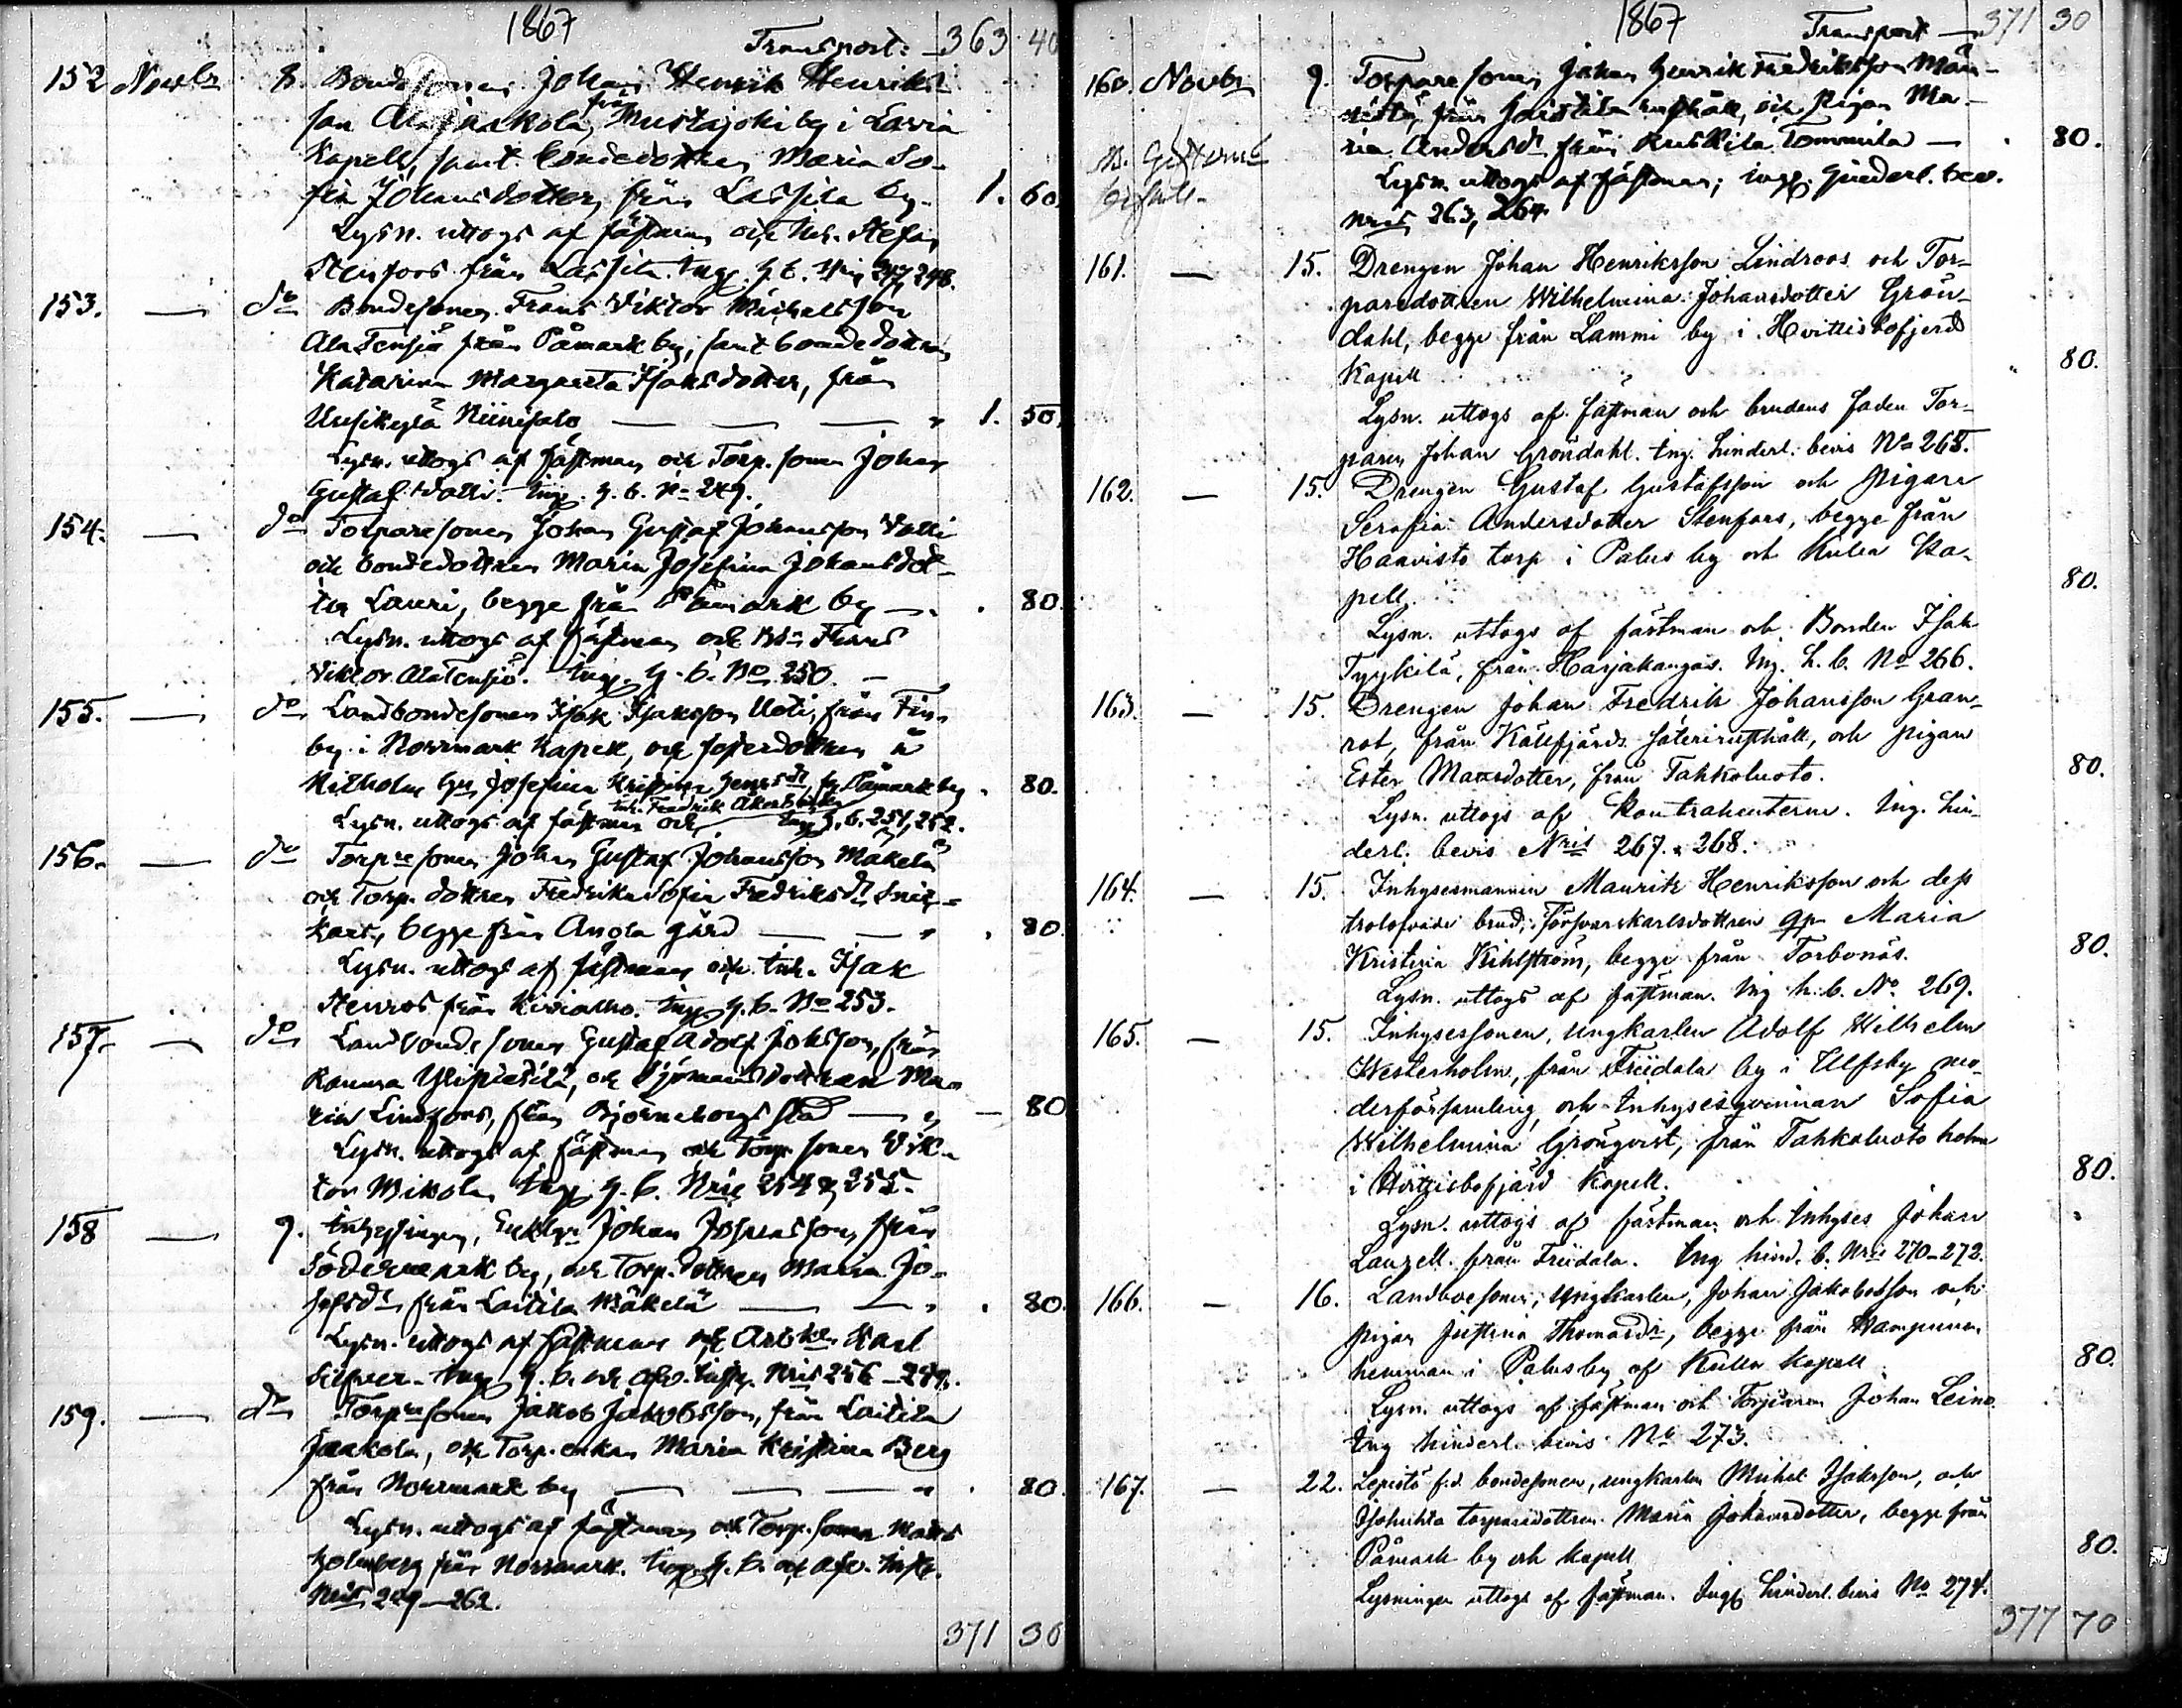 1867
Transport: 363 40
152 Novbr 8. Bondesonen Johan Henrik Henriks-
son Ala Jaakola, från Mustajoki by i Lavia
Kapell, samt bondedottren Maria So-
fia Johansdotter, från Lassila by. 1. 60.
Lysn. uttogs af fästman och Stefan
Stenfors från Lassila. Ing. h. b. Nris 247, 248.
153. — do Bondesonen Frans Viktor Michelsson
Ala Tensjö från Påmark by, samt bondedottren
Katarina Margareta Isaksdotter, från
Uusikylä Niinisalo — — — " 1. 50.
Lysn. uttogs af fästman och Torp. sonen Johan
Gustaf Valli. Ing. h. b. No 249.
154. — do Torparesonen Johan Gustaf Johansson Valli
och bondedottren Maria Josefina Johansdot-
ter Lauri, begge från Påmark by — . 80.
Lysn. uttogs af fästman och Frans
Viktor Ala Tensjö. Ing. h. b. No 250. —
155. — do Landbondesonen Isak Isaksson Uoti, från Fin-
by i Norrmark Kapell, och
Josefina Kristina Henrsdr, fr. Påmark by . 80.
Inh. Fredrik Åkerb
Lysn. uttogs af fästman och Ing. h. b. 251, 252.
156. — do Torpresonen Johan Gustaf Johansson Mäkelä
och Torp. dottren Fredrika Sofia Fredriksdr Snic-
kars, begge från Anola gård — — " . 80.
Lysn. uttogs af fästman och Inh. Isak
Stenros från Ing. h. b. No 253.
157. — do Landbondesonen Gustaf Adolf Johsson, från
och Sjömansdottren Ma-
ria Lindfors, från Björneborgs stad — " — 80
Lysn. uttogs af fästman och Torp. sonen Vik-
tor Mikola, Ing. h. b. Nris 254 & 255.
158 — 9. Enkl. Johan Josefsson, från
Södermark by, och Torp. dottren Maria Jo-
sefsdr från Laitila Mäkelä — — " . 80.
Lysn. uttogs af fästman och Karl
Silfver. Ing. h. b. och Nris 256–258.
159. — do Torpresonen Jakob Jakobsson, från Laitila
Jaakola, och Torp. enkan Maria Kristina Berg
från Norrmark by — — — " . 80.
Lysn. uttogs af fästman och Torp. sonen Mats
Holmberg från Norrmark. Ing. h. b. och
Nris 259–262.
371 30
1867
Transport — 371 30
160. Novbr 9. Torparesonen Johan Henrik Fredriksson Män-
nistö, från rusthåll, och Pigan Ma-
ria Andersdr från Ruskila Tommila — . 80.
Lysn. uttogs af fästman; ingp. hinderl. bev.
Nris 263, 264.
161. — 15. Drengen Johan Henriksson Lindroos och Tor-
paredottren Wilhelmina Johansdotter Grön-
dahl, begge från Lammi by i Hvittisbofjerd
Kapell " 80.
Lysn. uttogs af fästman och brudens fader Tor-
paren Johan Gröndahl. Ing. hinderl. bevis No 265.
162. — 15. Drengen Gustaf Gustafsson och pigan
Serafia Andersdotter Stenfors, begge från
Haavisto torp i Palus by och Kulla Ka-
pell. 80.
Lysn. uttogs af fästman och Bonden Isak
Tyykilä, från Harjakangas. Ing. h. b. No 266.
163. — 15. Drengen Johan Fredrik Johansson Gran-
rot, från Källfjärds säterirusthåll, och pigan
Ester Mansdotter, från Tahkoluoto. 80.
Lysn. uttogs af Kontrahenterne. Ing. hin-
derl. bevis Nris 267. & 268.
164. — 15. Inhysesmannen Maurits Henriksson och dess
trolofvade brud, Försvarskarlsdottren Maria
Kristina Kihlström, begge från Torbonäs. 80.
Lysn. uttogs af fästman. Ing h. b. No. 269.
165. — 15. Inhysessonen, ungkarlen Adolf Wilhelm
Westerholm, från Friidala by i Ulfsby mo-
derförsamling, och Inhysesqvinnan Sofia
Wilhelmina Grönqvist, från Tahkoluoto holm
i Hvittisbofjärd Kapell. 80.
Lysn. uttogs af fästman och Inhyses Johan
Lauzell från Friidala. Ing hind. b. Nris 270–272.
166. — 16. Landboesonen, ungkarlen, Johan Jakobsson och
pigan Justina Thomasdr, begge från
hemman i Palus by af Kulla Kapell 80.
Lysn. uttogs af fästman och Torparen Johan Leino
Ing hinderl. bevis No 273.
167. — 22. Lepistö f.d. bondesonen, ungkarlen Mickel Isaksson, och
torparedottren Maria Johansdotter, begge från
Påmark by och kapell 80.
Lysningen uttogs af fästman. Ingp hinderl. bevis No 274.
377 70